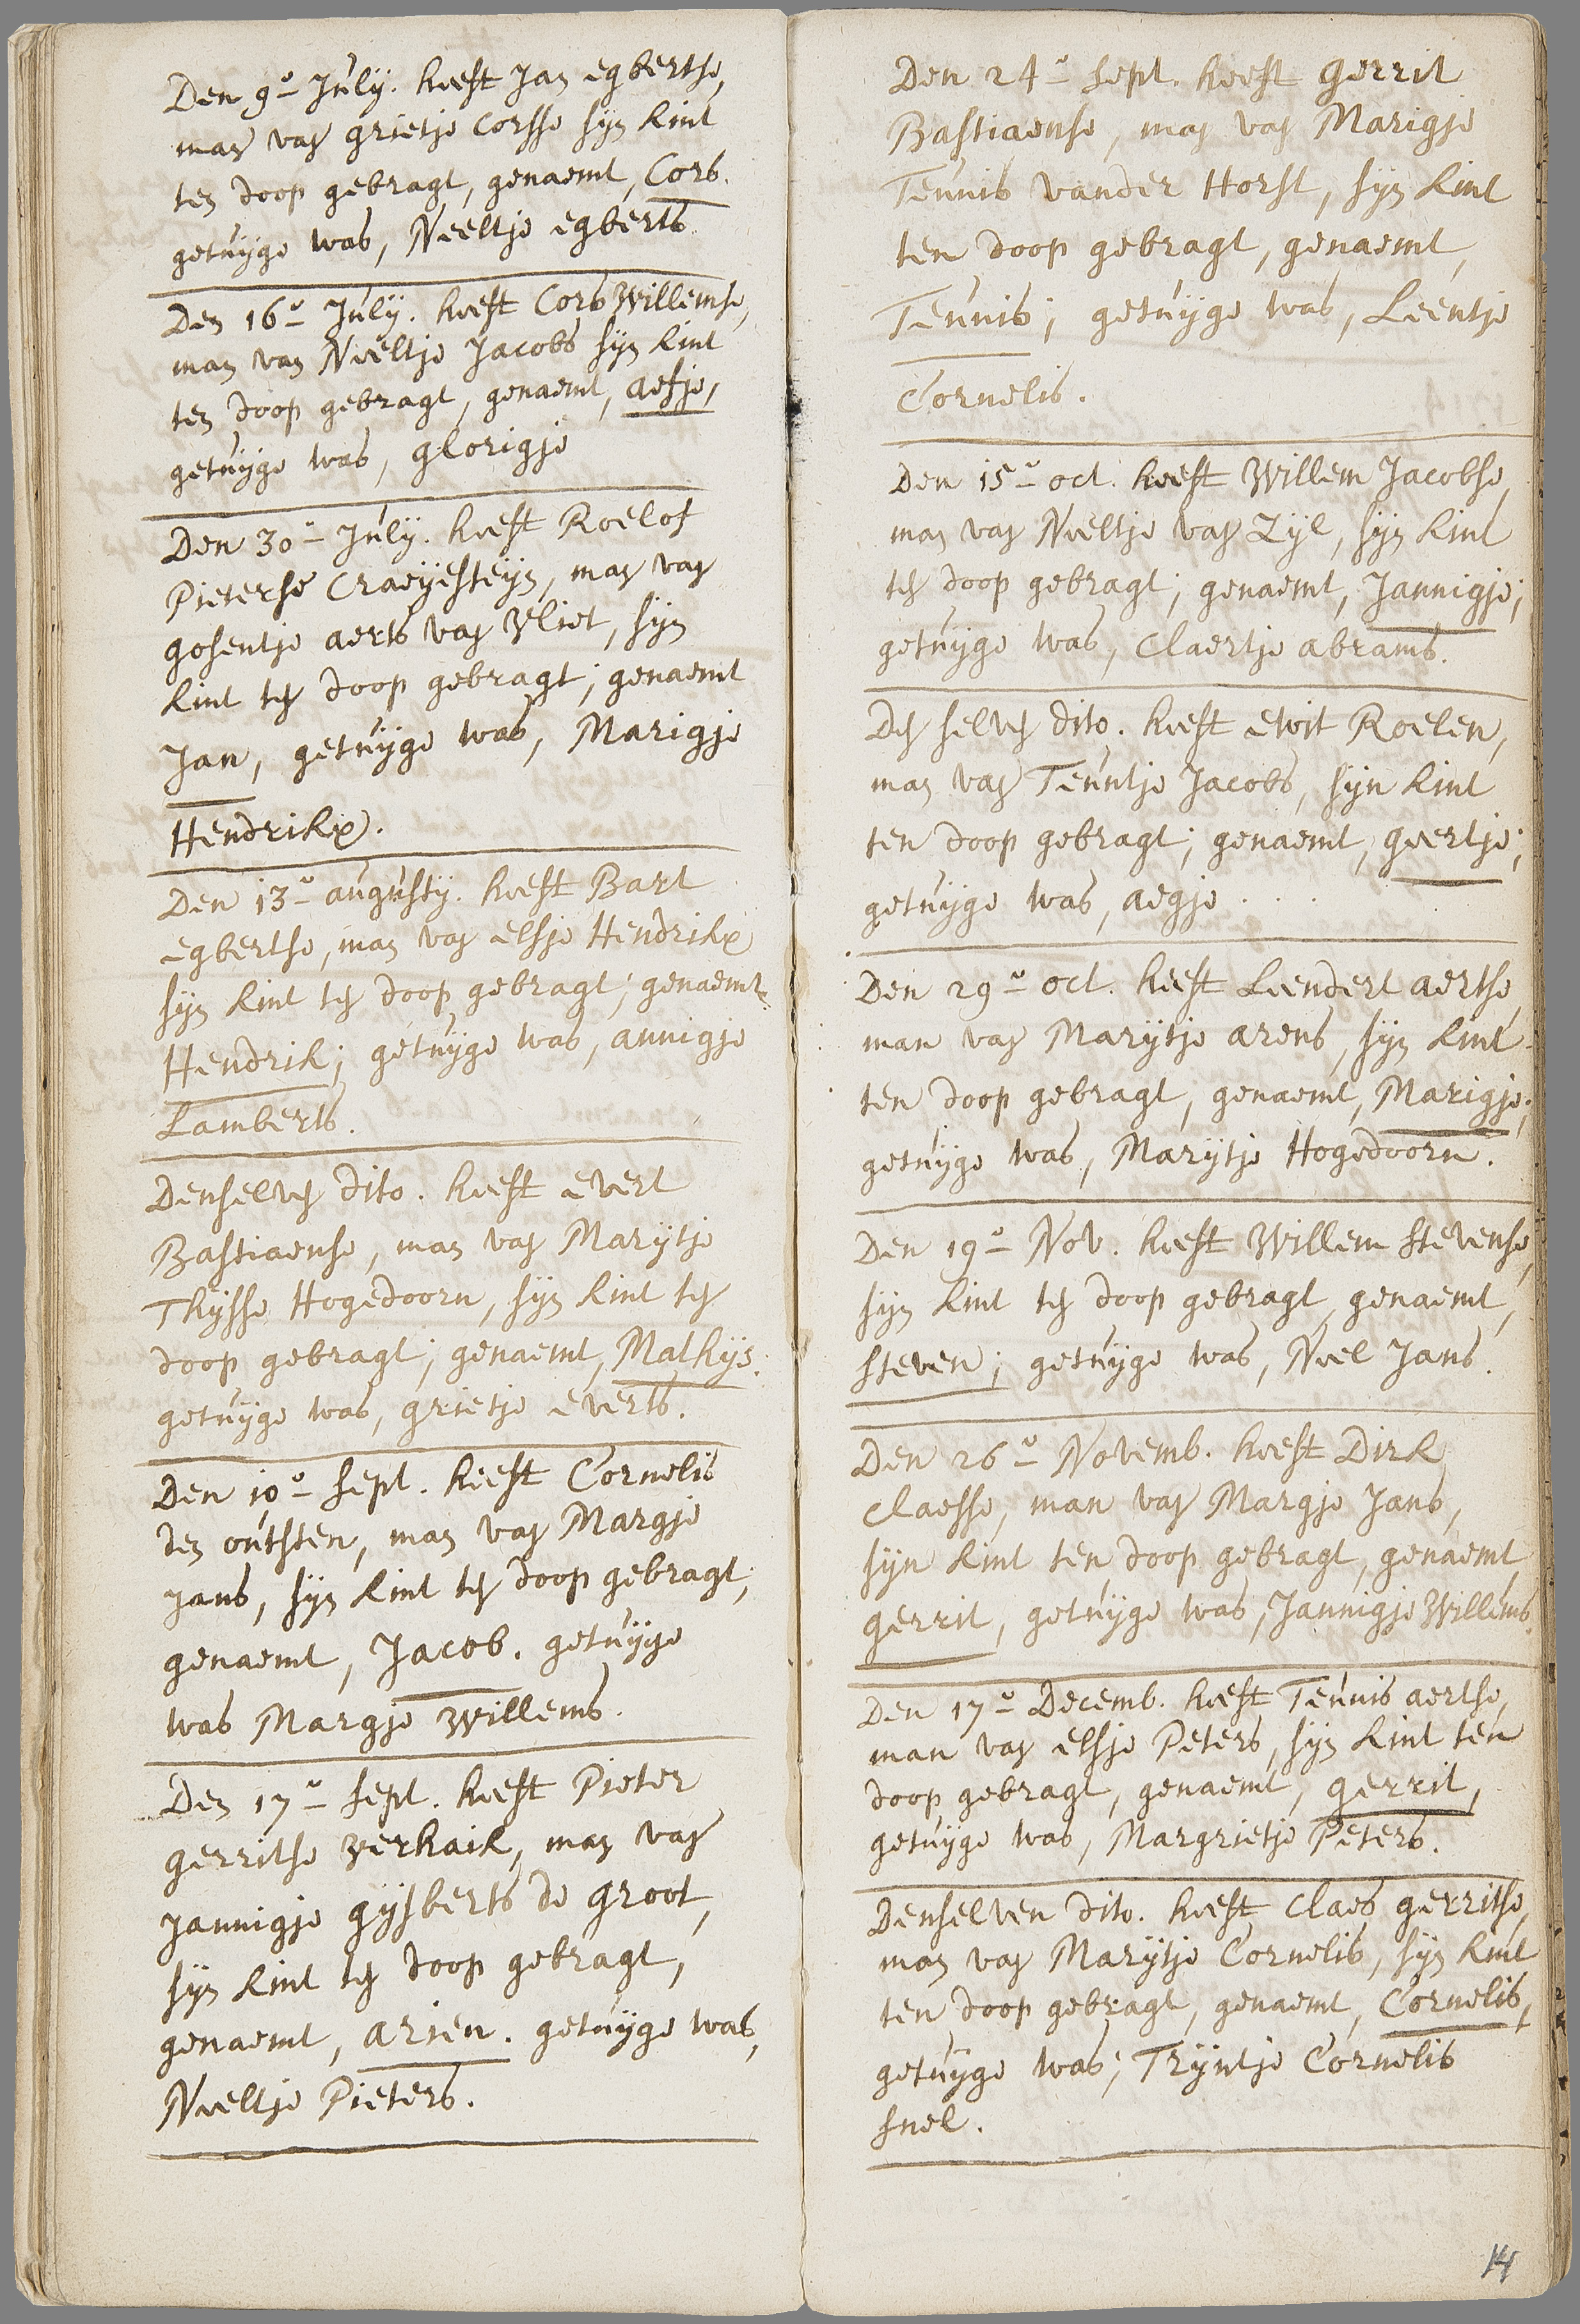 Den 9e July. heeft Jan egbertse,
man van grietje Corsse sijn kint
ten doop gebragt, genaemt, Cors.
getuijge was, Neeltje egberts.
Den 16e July. heeft Cors Willemse,
man van Neeltje Jacobs sijn kint
ten doop gebragt, genaemt, aefje,
getuijge was, glorigje
Den 30e July. heeft Roelof
Pieterse Craeijesteijn, man van
gosentje aerts van Vliet, sijn
kint ten doop gebragt; genaemt
Jan, getuijge was, Marigje
Hendrikx.
Den 13e augusty. heeft Bart
egbertse, man van elsje Hendrikx
sijn kint ten doop gebragt; genaemt
Hendrik; getuijge was, annigje
Lamberts.
Denselven dito. heeft evert
Bastiaense, man van Marijtje
Thijsse Hogedoorn, sijn kint ten
doop gebragt; genaemt, Mathijs.
getuijge was, grietje everts.
Den 10e sept. heeft Cornelis
den outsten, man van Margje
Jans, sijn kint ten doop gebragt,
genaemt, Jacob. getuijge
was Margje Willems.
Den 17e sept. heeft Pieter
gerritse Verhaik, man van
Jannigje gijsberts de groot,
sijn kint ten doop gebragt,
genaemt, arien. getuijge was,
Neeltje Pieters.
Den 24e sept. heeft gerrit
Bastiaense, man van Marigje
Teunis vander Horst, sijn kint
ten doop gebragt, genaemt,
Teunis; getuijge was, Leentje
Cornelis.
Den 15e oct. heeft Willem Jacobse,
man van Neeltje van Zijl, sijn kint
ten doop gebragt; genaemt, Jannigje;
getuijge was, Claertje abrams.
Den selven dito. heeft ewit Roelen,
man van Teuntje Jacobs, sijn kint
ten doop gebragt; genaemt, geertje;
getuijge was, aegje . . .
Den 29e oct. heeft Leendert aertse,
man van Marijtje arens, sijn kint
ten doop gebragt, genaemt, Marigje;
getuijge was, Marijtje Hogedoorn.
Den 19e Nov. heeft Willem stevense,
sijn kint ten doop gebragt, genaemt,
steven; getuijge was, Neel Jans.
Den 26e Novemb. heeft Dirk
Claesse, man van Margje Jans,
sijn kint ten doop gebragt, genaemt
gerrit, getuijge was, Jannigje Willems.
Den 17e Decemb. heeft Teunis aertse,
man van elsje Peters, sijn kint ten
doop gebragt, genaemt, gerrit,
getuijge was, Margrietje Peters.
Denselven dito. heeft Claes gerritse,
man van Marijtje Cornelis, sijn kint
ten doop gebragt, genaemt, Cornelis,
getuijge was; Trijntje Cornelis
snel.
14